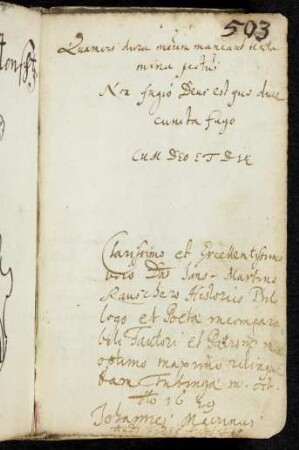 503
Quamvis dura meum maneant
pectus
Non fugio Deus est quo duce
cuncta fugo
CUM DEO ET DIE
Clarissimo et Excellentissimo
viro Dno Martino
Rauschero Historico Philo
logo et Poëta incompara
bili Fautori et Patrono
optimo maximo relinque
bam Tubingæ m. Oct.
Ao 16 29
Johannes